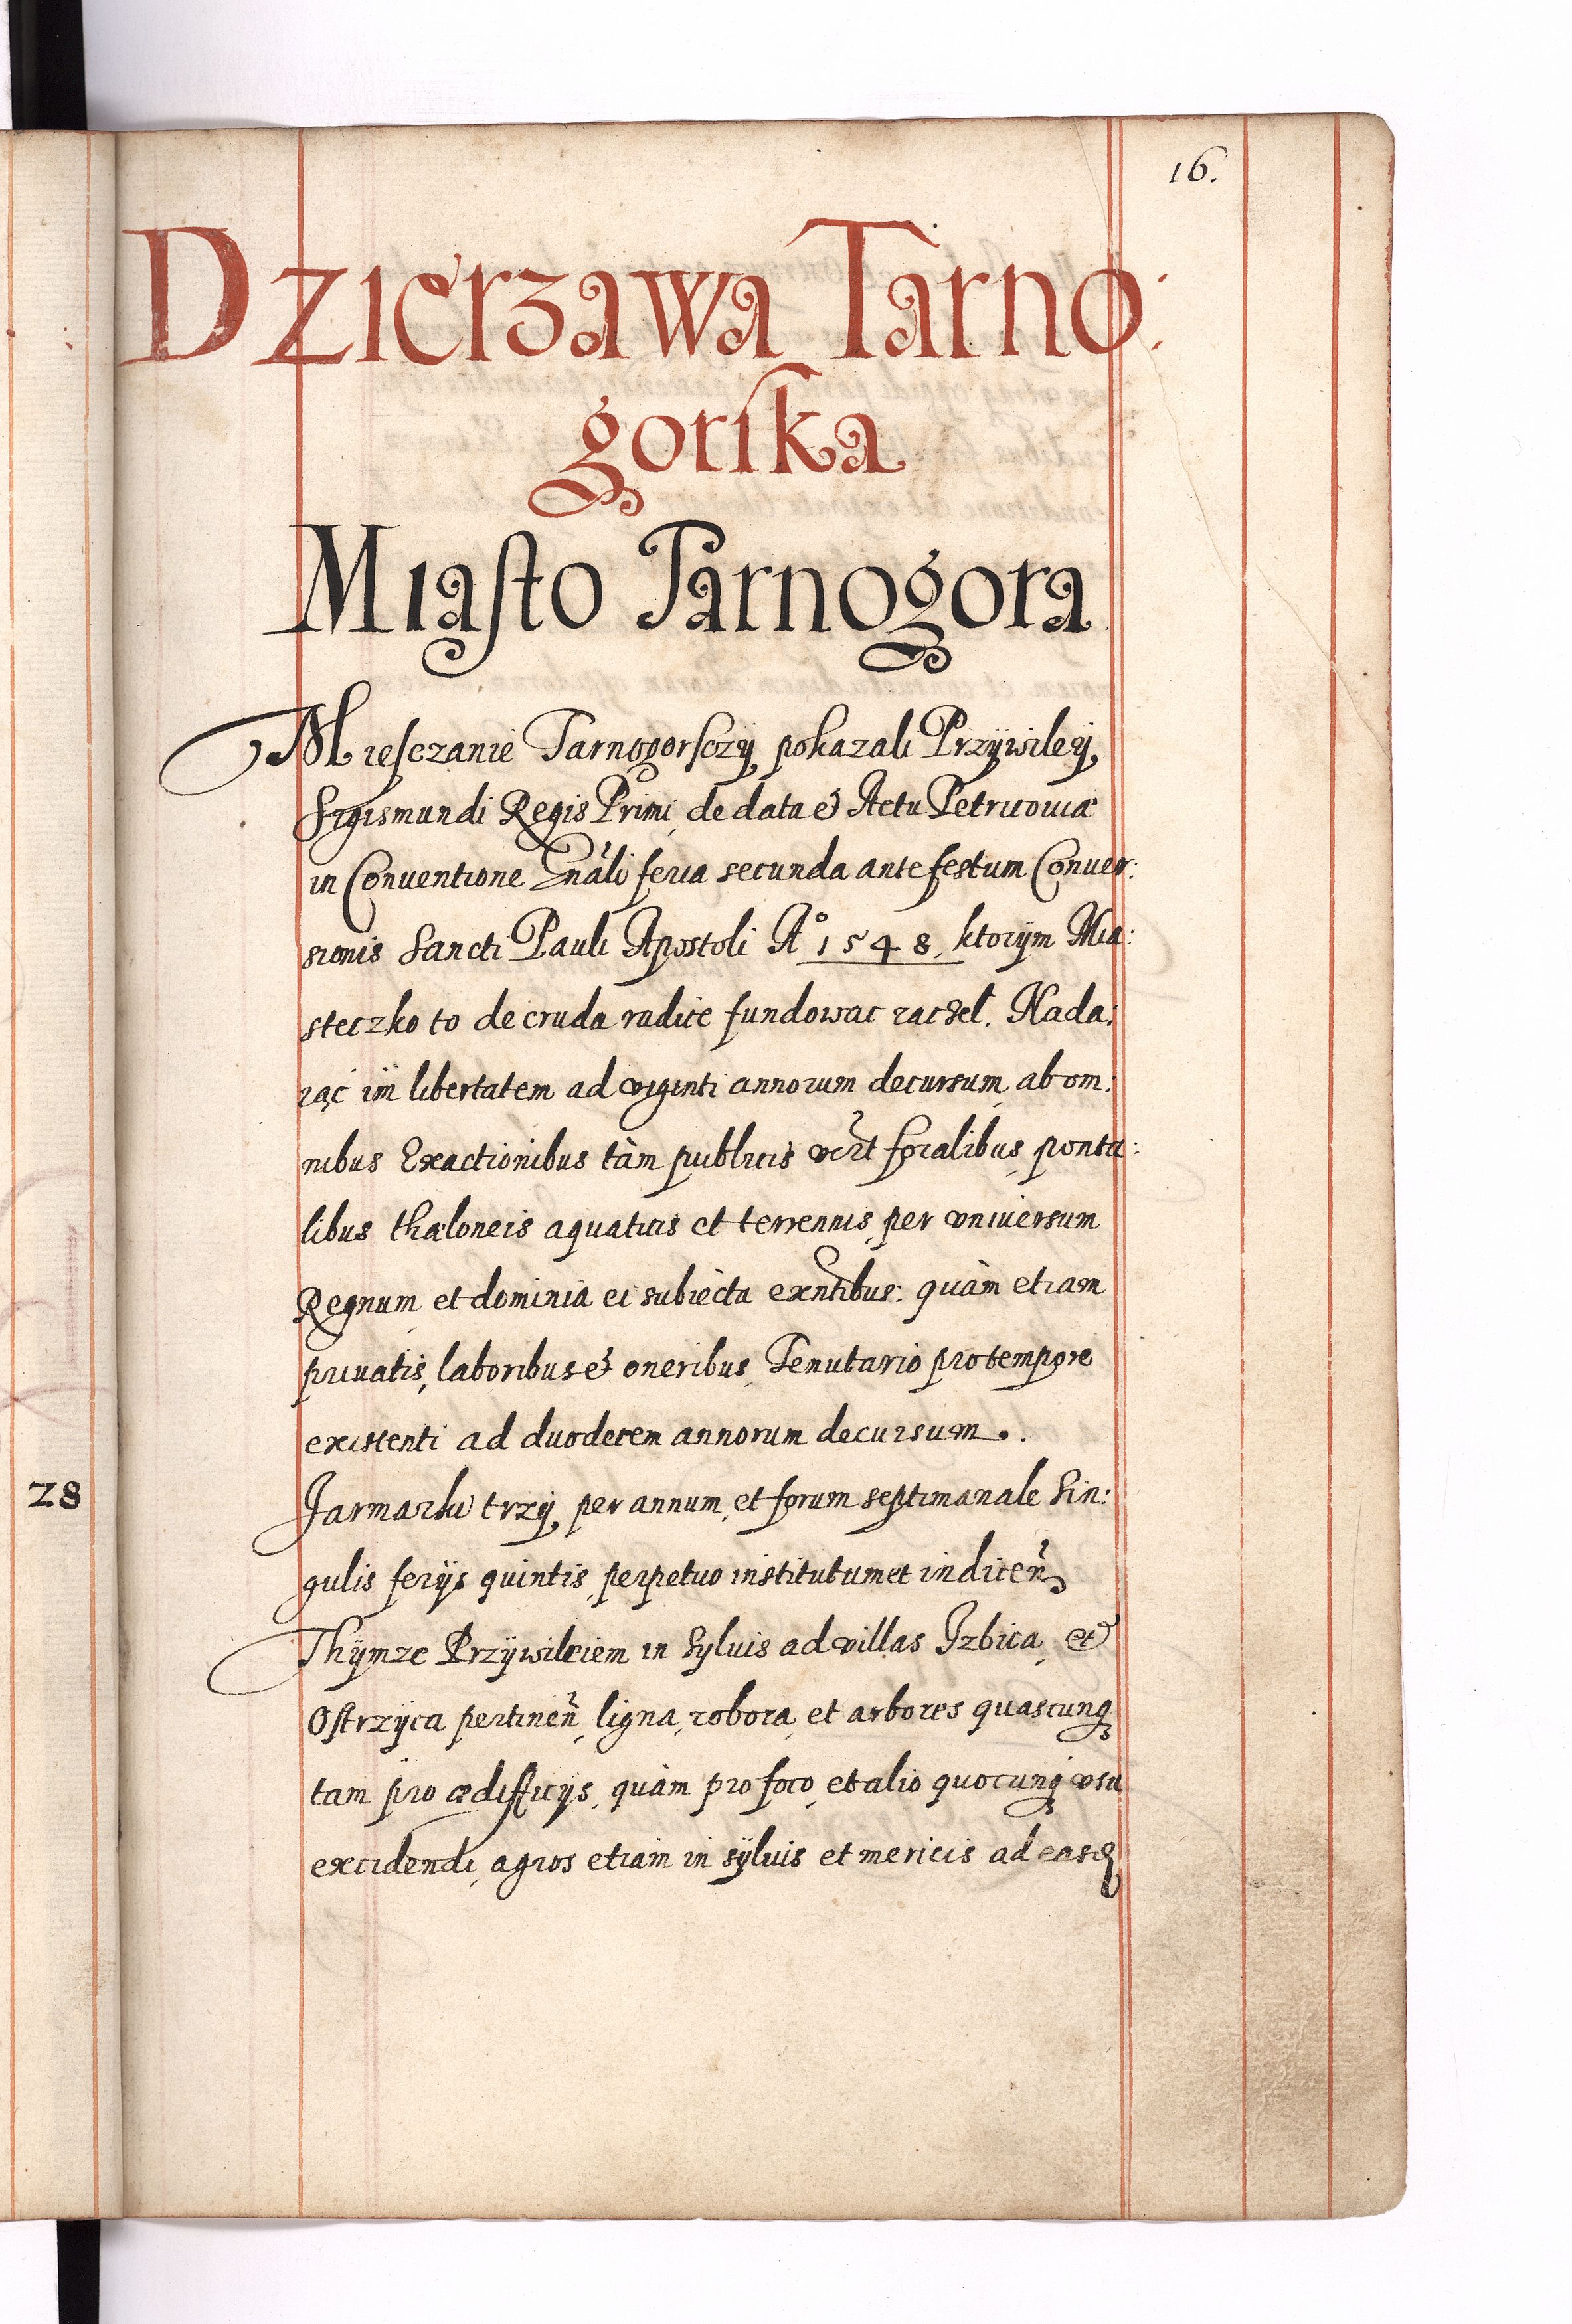 16.
Dzierzawa Tarno:
gorska
Miasto Tarnogora
Miesczanie Tarnogorsczÿ pokazali Przÿwileÿ
Sigismundi Regis Primi, de data et Actu Petricouiæ
in Conuentione Gn̄ali feria secunda ante festum Conuer:
sionis Sancti Pauli Apostoli A° 1548. ktorÿm Mia:
steczko to de cruda radice fundowac raczel. Nada:
iąc im libertatem ad viginti annorum decursum ab om:
nibus Exactionibus tàm publicis vi𝑧t foralibus, ponta:
libus thæloneis aquaticis et terrennis, per vniuersum
Regnum et dominia ei subiecta exn̄tibus: quàm etiam
priuatis, laboribus et oneribus, Tenutario pro tempore
existenti ad duodecem annorum decursum.
28
Jarmarki trzÿ per annum, et forum septimanale Sin:
gulis ferÿs quintis, perpetuo institutum et indicen̄
Thÿmze Przÿwileiem in Syluis ad villas Izbica, et
Ostrzÿca pertinen̄, ligna, robora, et arbores quascunq
tam pro ædifficÿs, quàm pro foco, et alio quocunq vsu
excidendi, agros etiam in sÿluis et mericis ad easd